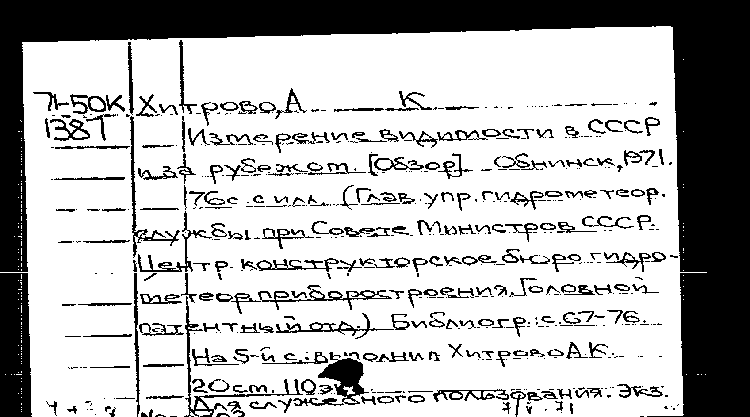 71-50К Хитрово, А К
138Т Измерение видимости в СССР
и за рубежом. [Обзор]. Обнинск, 1971.
76с. с илл. (Глав. упр. гидрометеор.
службы при Совете Министров СССР.
Центр. конструкторское бюро гидро-
метеор. приборостроения. Головной
патентный отд.) Библиогр.: с. 67-76.
На 5-й с.: выполнил Хитрово А.К.
20см. 110
Для служебного пользования. Экз.